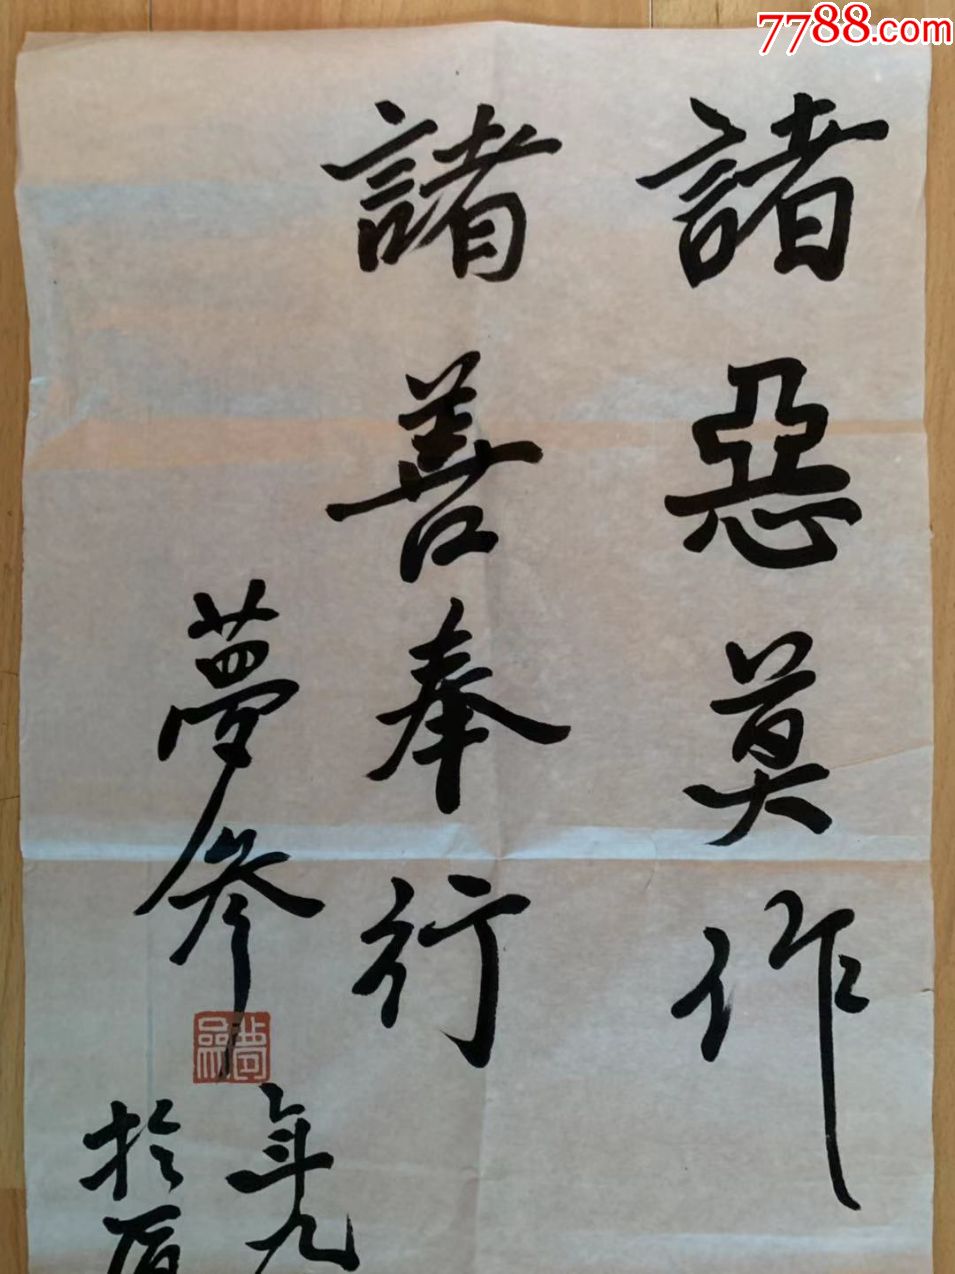 7788.com
諸惡莫作
諸善奉行
夢參
夢參
年九
於